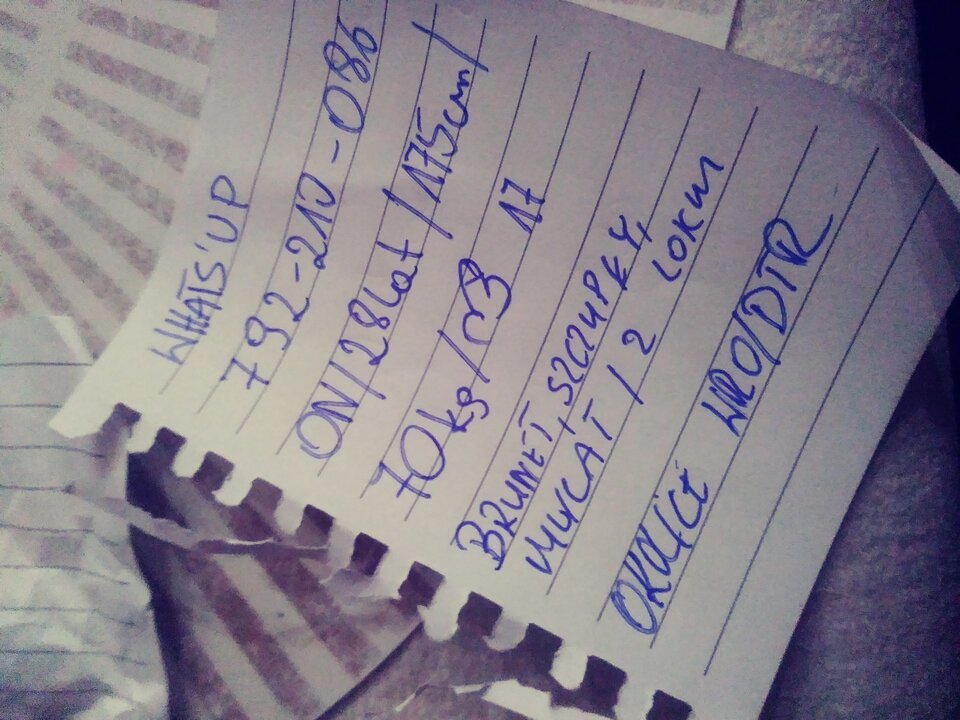 WHATS'UP
792-210-086
ON/28lat/175cm/
70kg/ 17
BRUNET, SZCZUPŁY,
/ 2 LOKUM
OKOLICE WRO/DTR